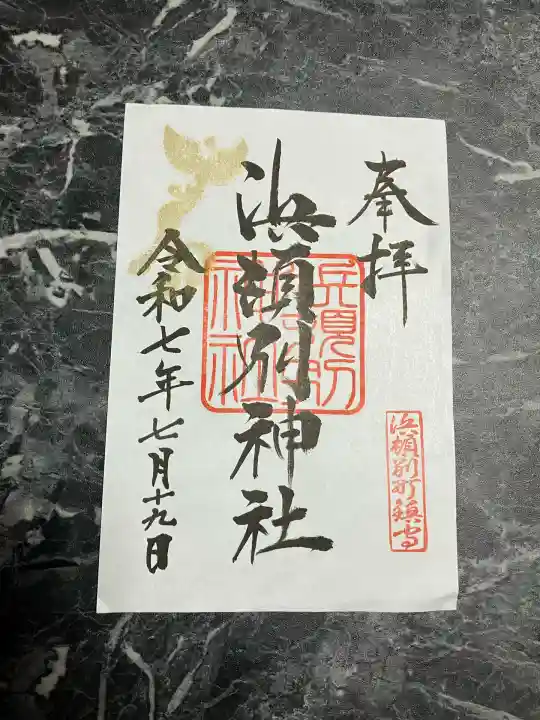 奉拝
浜頓別町鎮守
浜頓別神社
令和七年七月十九日